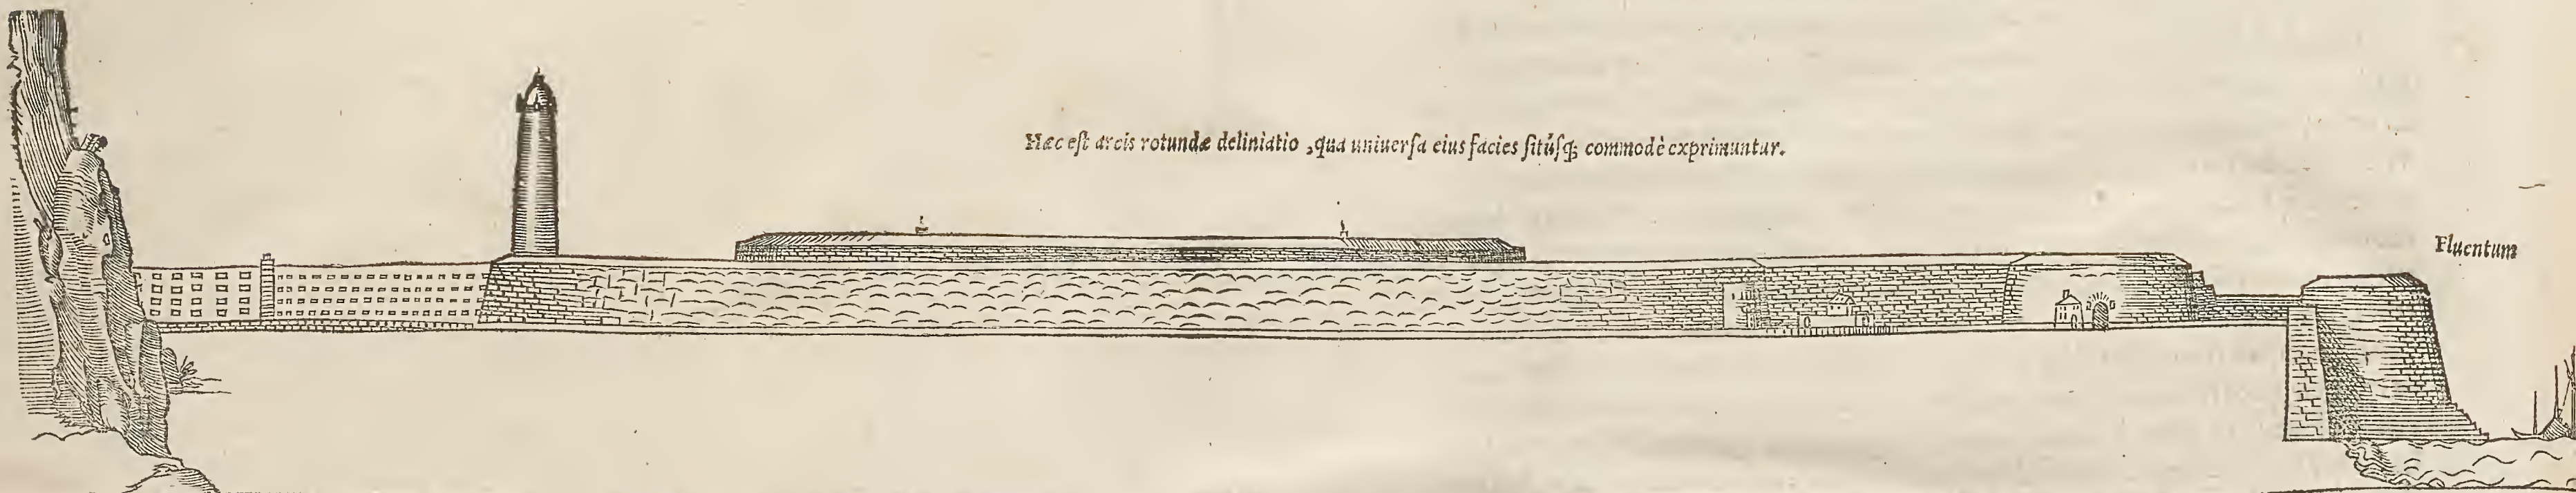 Hæc est arcis rotundæ deliniatio, qua uniuersa eius facies sitúsq; commodè exprimuntur.
Fluentum